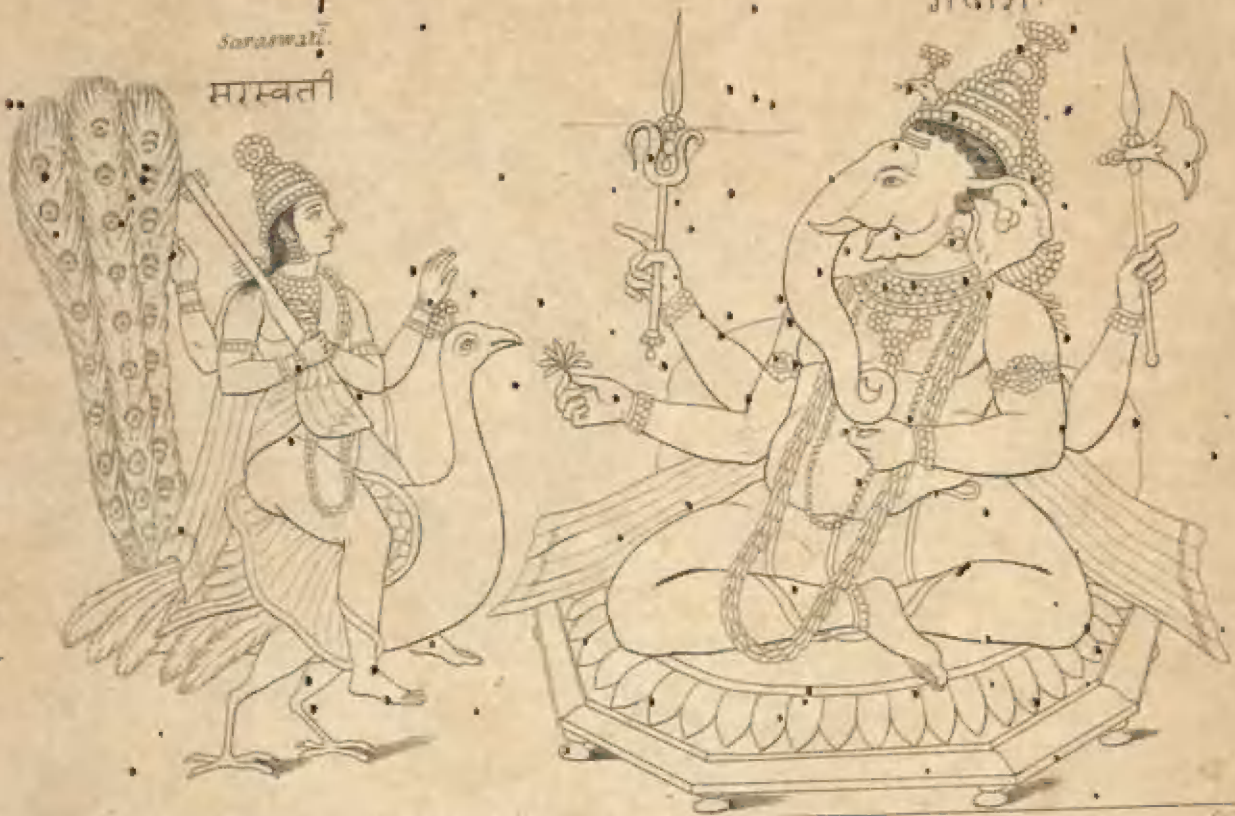 Saraswatī.
सरस्वती
गणेश.